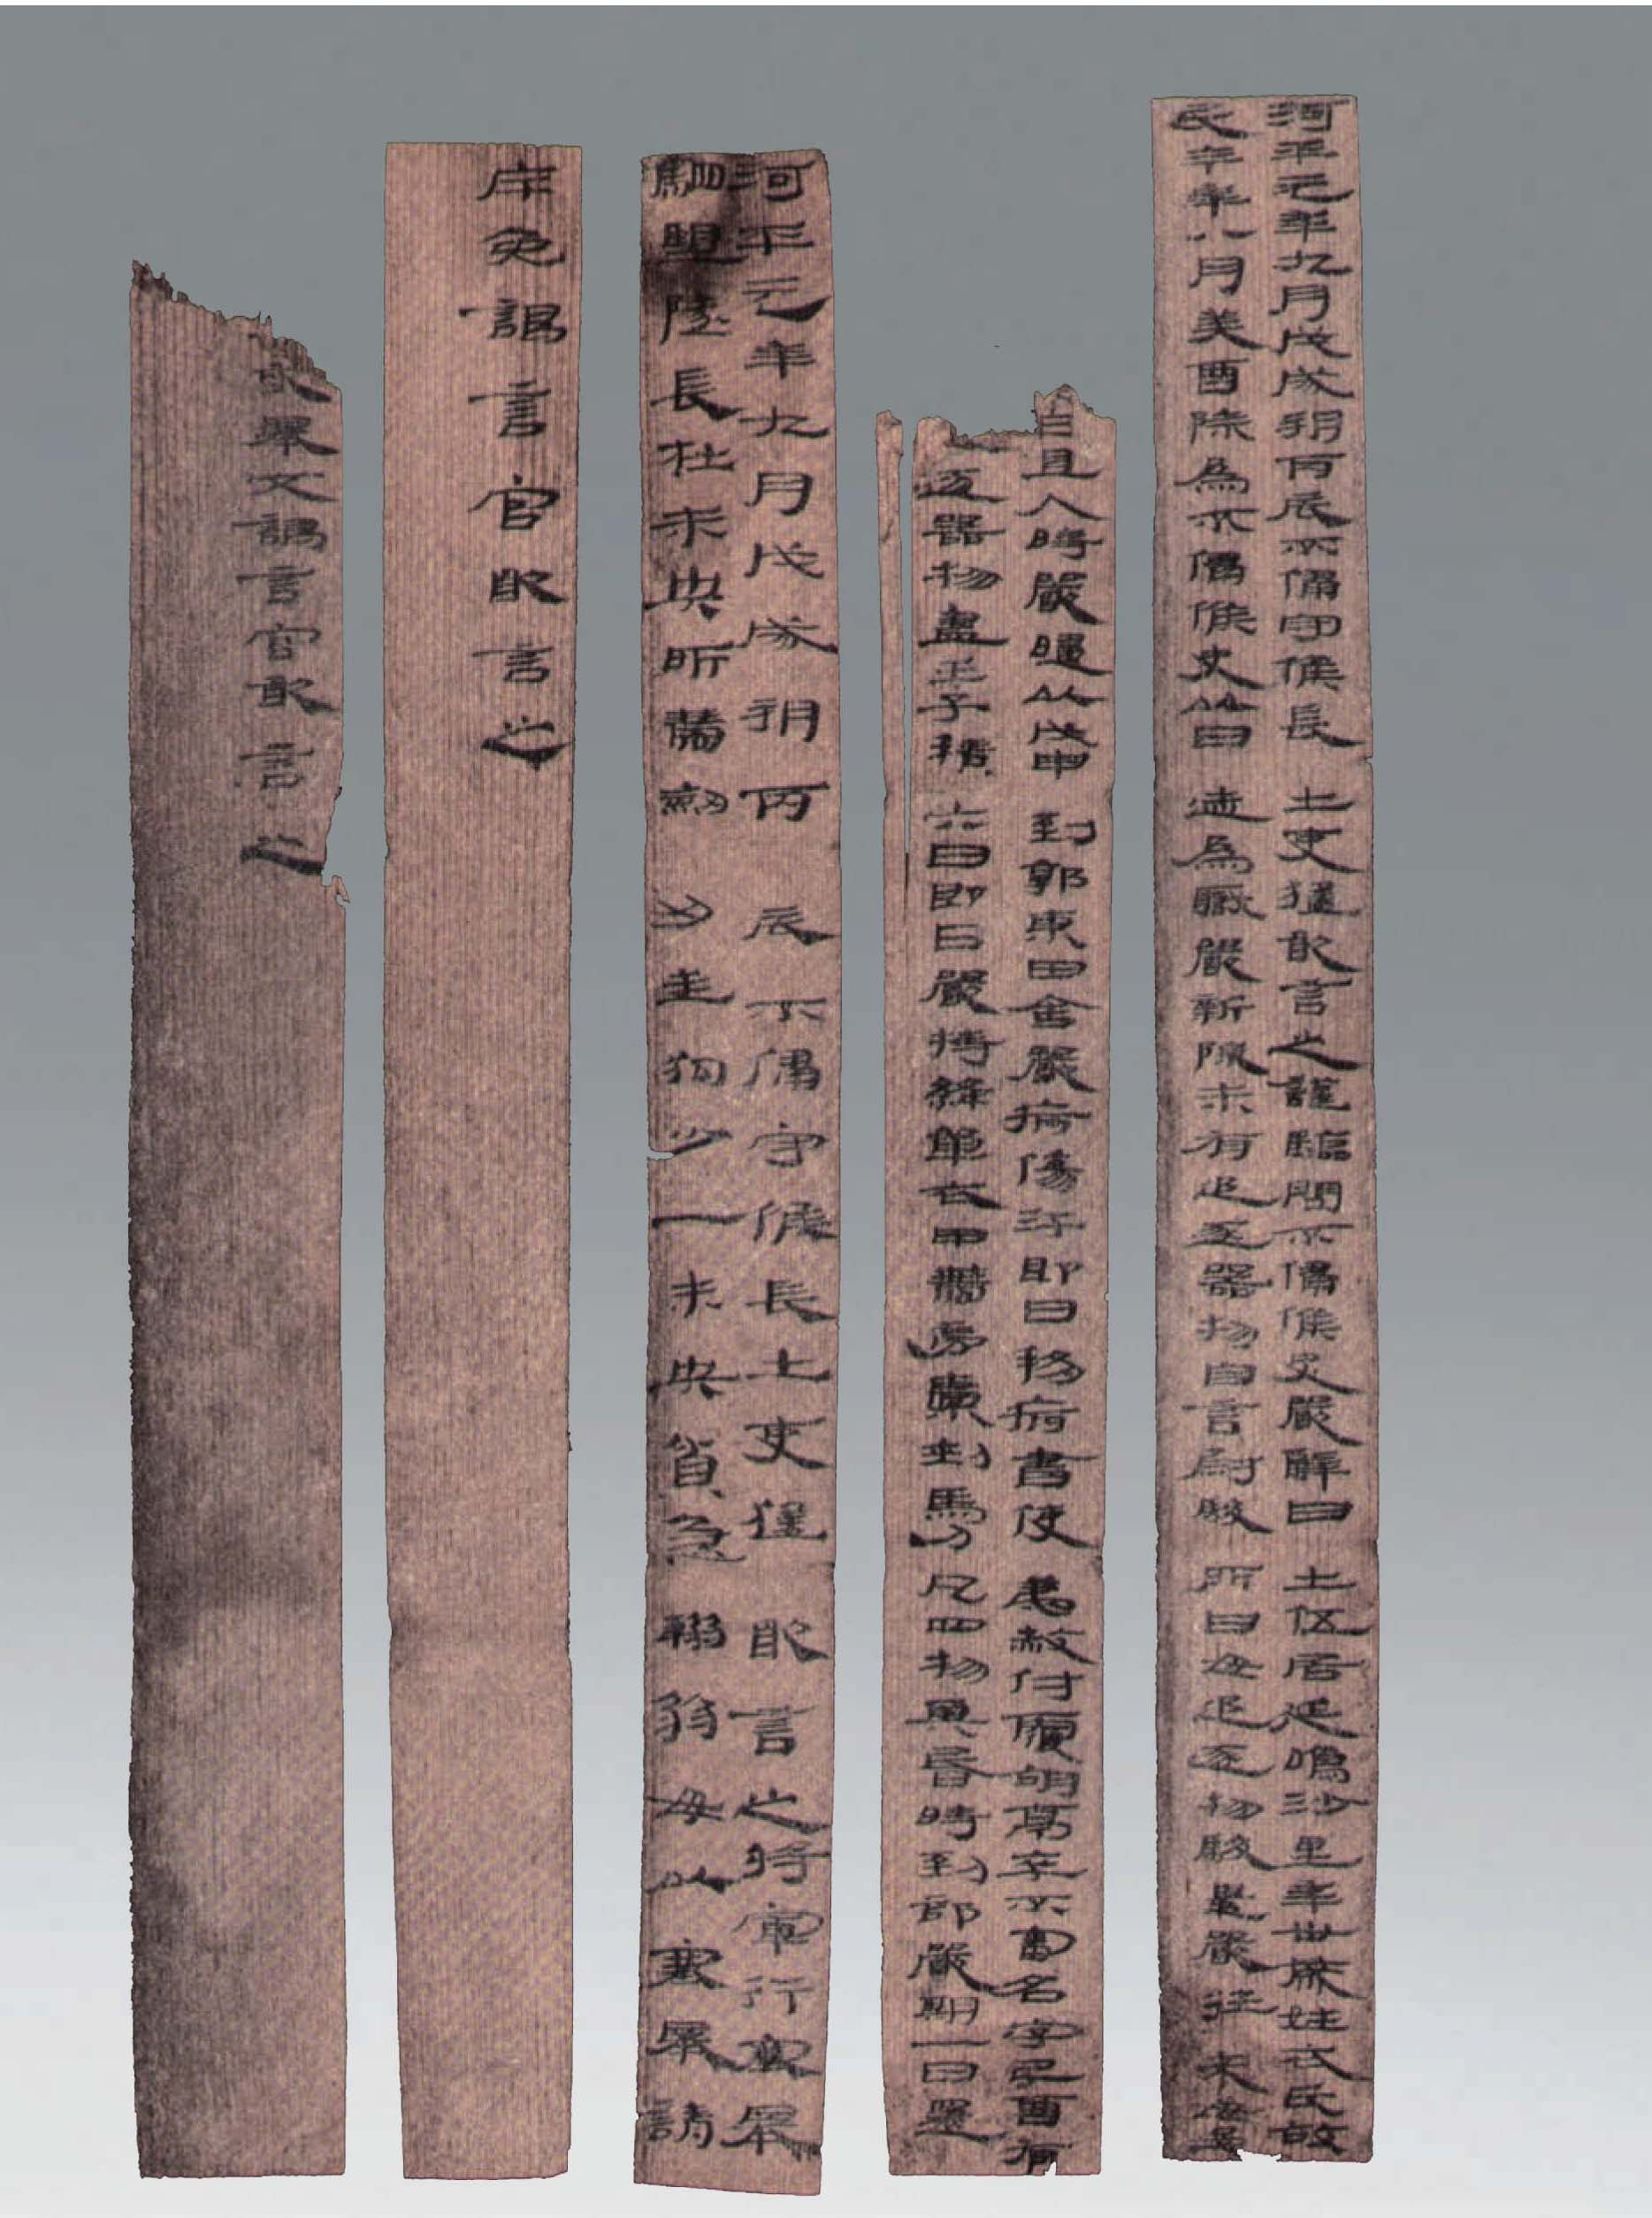 河平元年九月戊戌朔丙辰不侵守候長士吏猛敢言之謹驗問不侵候史嚴辭曰士伍居延鳴沙里年卅歲姓衣氏故
民今年八月癸酉除為不侵候史以日迹為職嚴新除未有追逐器物自言尉駿所曰毋追逐物駿遣嚴往來毋
且入時嚴歸以戊申到郭東田舍嚴病傷汗即日移病書使 赦付覆胡亭卒不審名字己酉有
追逐器物盡壬子積六日即日嚴持絳單衣甲帶旁橐刺馬刀凡四物其昏時到部嚴期一日還
河平元年九月戊戌朔丙辰不侵守候長士吏猛敢言之將軍行塞舉
駟望隧長杜未央所帶劍刃生狗少一未央貧急 翁毋以塞舉請
斥免謁言官敢言之
敢舉文謁言官敢言之